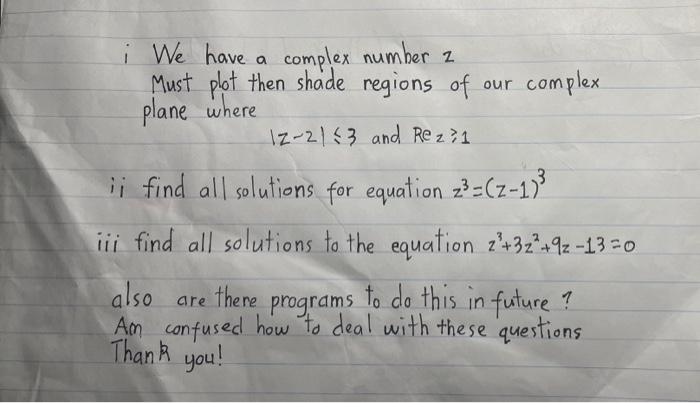 i We have a complex number z
Must plot then shade regions of our complex
plane where
|z-2| ≤ 3 and Re z ≥ 1
ii find all solutions for equation z³=(z-1)³
iii find all solutions to the equation z³+3z²+9z-13=0
also are there programs to do this in future ?
Am confused how to deal with these questions
Thank you!